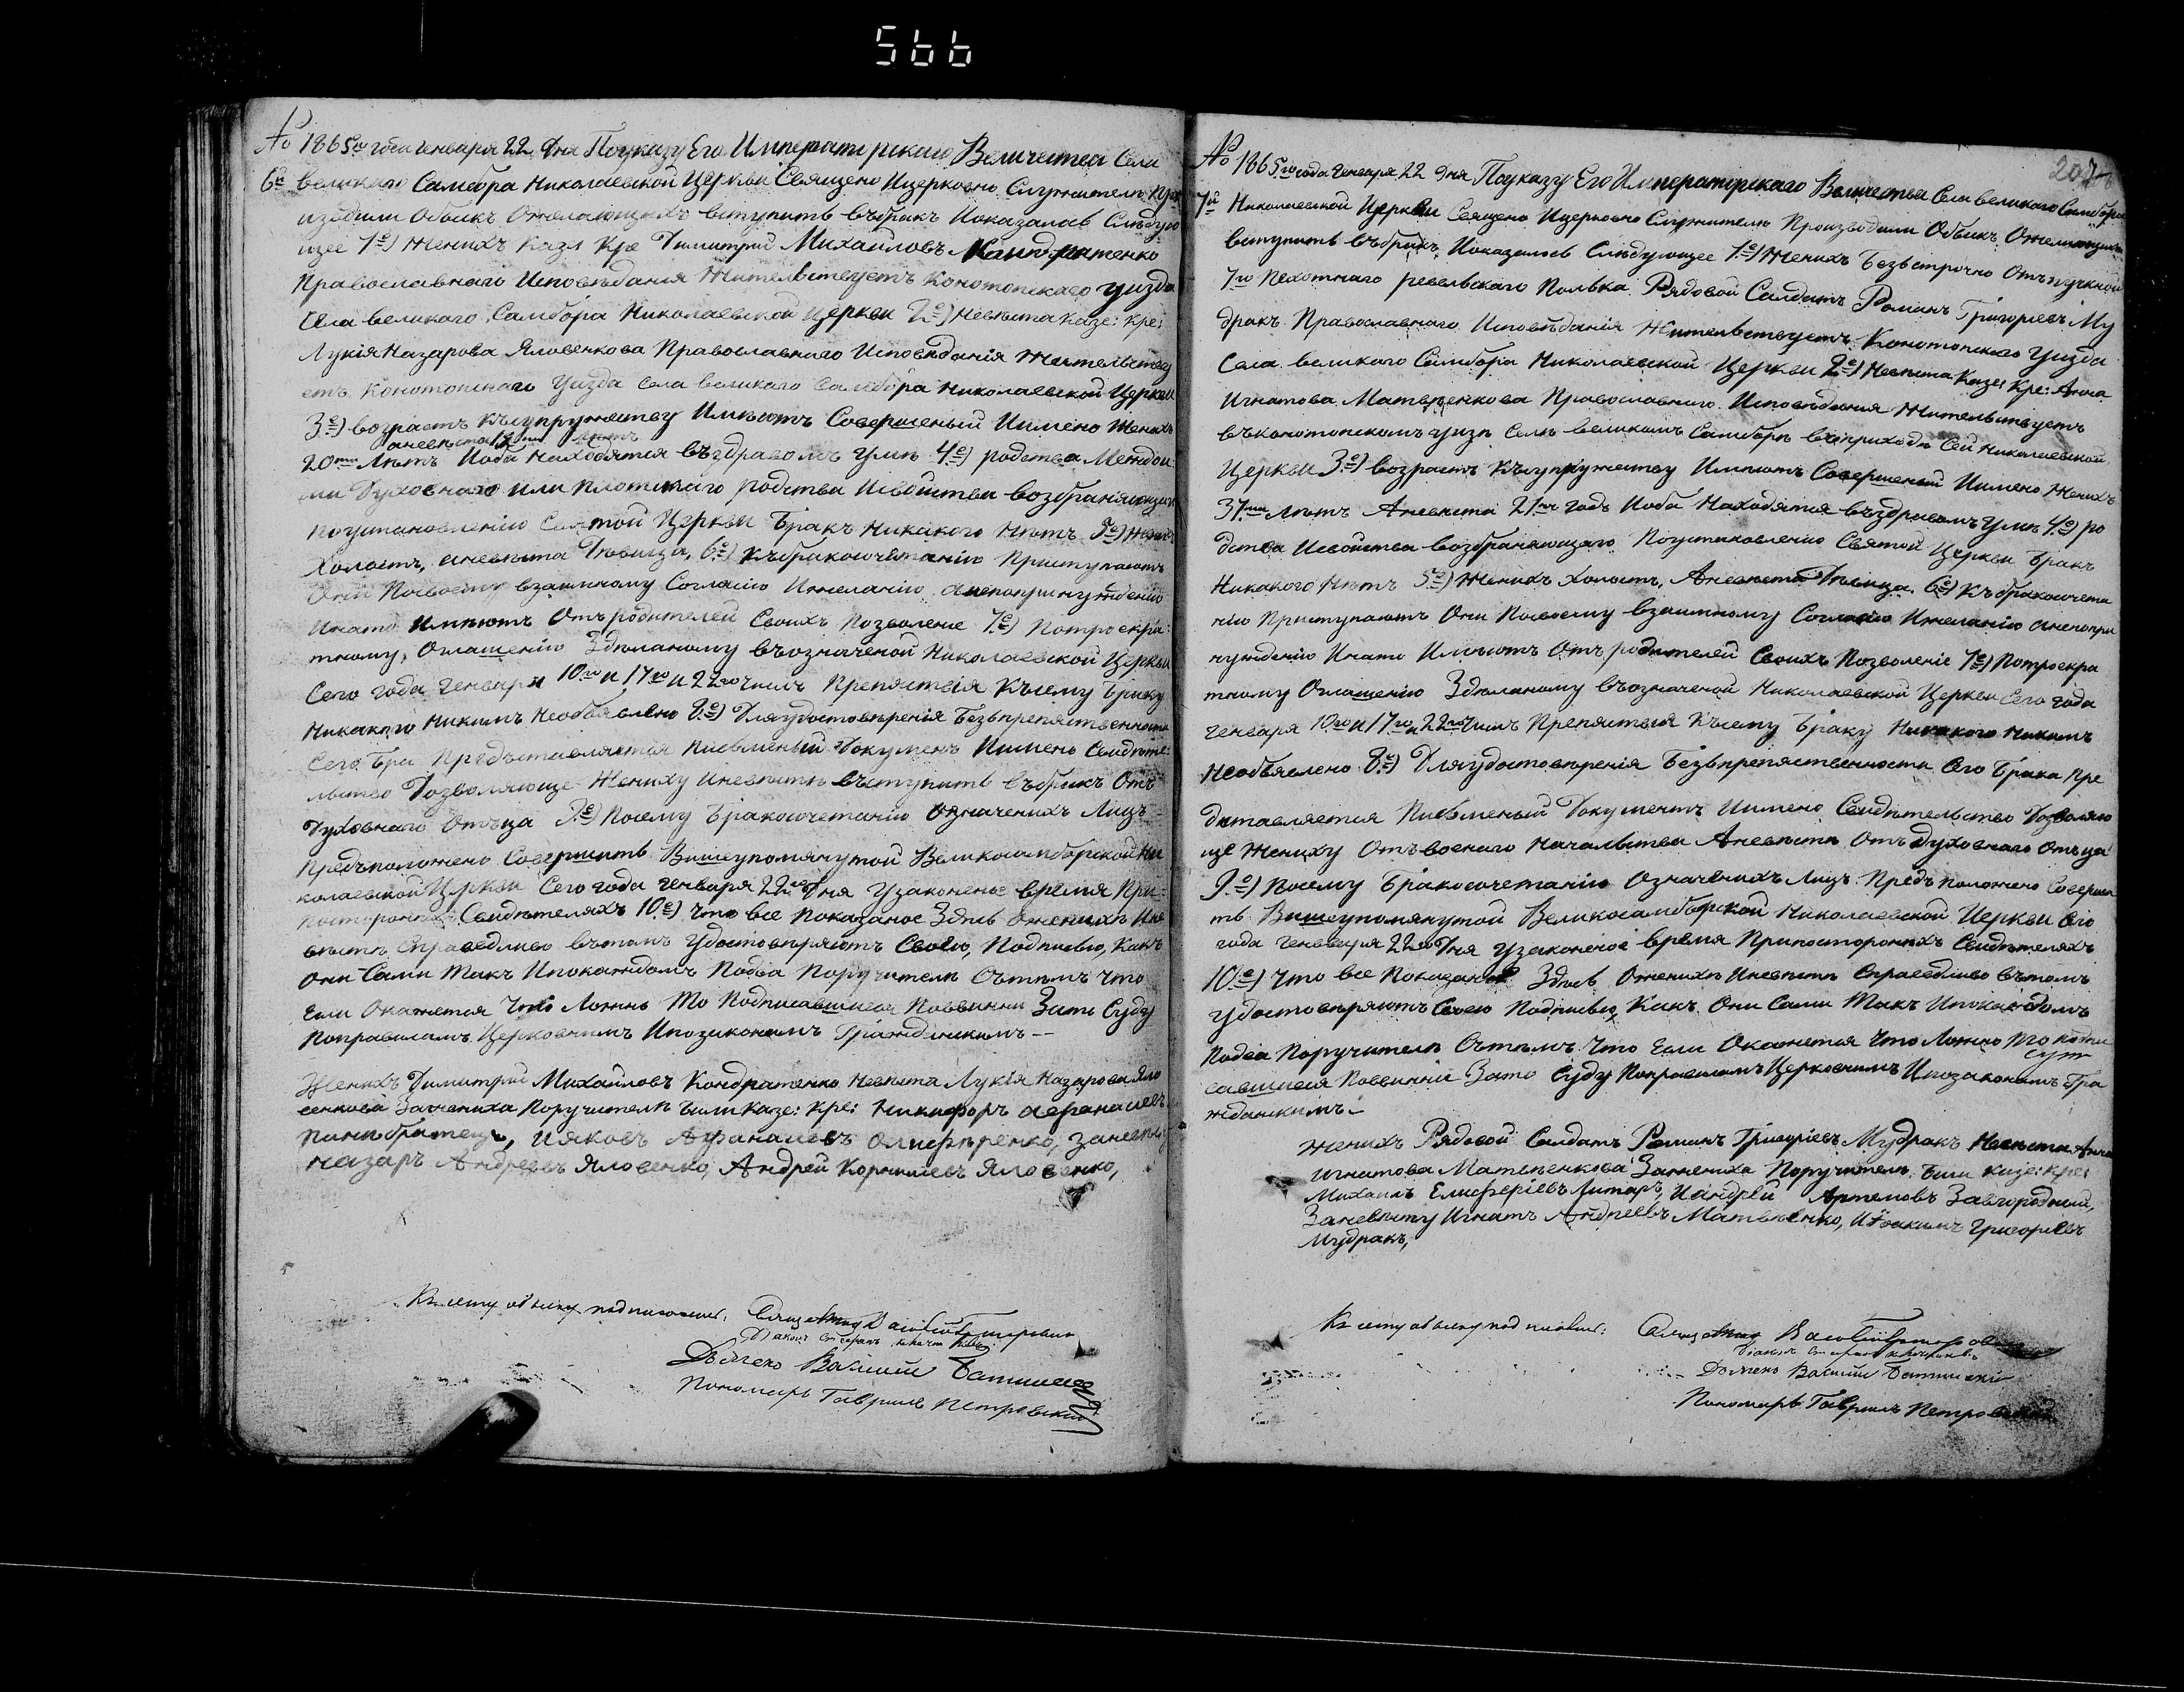 566
№ 1865го года генваря 22 дня Поуказу Его Императорскаго Величества Села
6й великаго Самбора Николаевской Церкви Священо Ицерковно Служителю Про
изводили Обыкъ Ожелающихъ вступить въбракъ Ипоказалось Слѣдую
щее 1е) Женихъ Каз: Кре Димитрий Михайловъ Кондратенко
Православнаго Исповѣдания Жительствуетъ Конотопскаго уизда
Села великого Самбора Николаевской Церкви 2е) Невѣста Казе: Кре:
Лукія Назарова Яловенкова Православнаго Исповѣданія Жительству
етъ Конотопскаго Уизда Села великаго Самбора Николаевской Церкви
3е) возрастъ Късупружеству Имѣютъ Совершеный Иимено Женихъ
аневѣста лѣтъ
20ти Лѣтъ Иоба Находятся въздравомъ умѣ 4е) родства Междои
ми Духовнаго или плотскаго родства Исвойства возбраняющаго
Поустановленію Святой Церкви Бракъ Никакого Нѣтъ 5е) Женихъ
Холостъ, аневѣста Дѣвица, 6е) Къбракосочетанію Приступаютъ
Они Посвоему взаимному Согласію Ижеланію анепопринуждению
Инато Имѣютъ Отъродителей Своихъ Позволение 7е) Потроекра
тному, Оглашенію Зделаному въозначеной Николаевской Церкви
Сего года Генваря 10го и 17го и 22го Чиселъ Препятствія Късему Браку
Никакого Никимъ Необъявлено 8е) Дляудостовѣренія Безъпрепятственности
Сего Бра Предъставляется Писменый Документъ Иимено Свидѣте
льство Дозволяюще Жениху Иневѣстѣ въступить въбракъ Отъ
Духовнаго Отъца 9е) Посему Бракосочетанію Означенихъ Лицъ
Предъположено Совершить Вишеупомянутой Великосамборской Ни
колаевской Церкви Сего года генваря 22го Дня Узаконеное время При
постороннихъ Свидѣтеляхъ 10.е) Что все Показаное Здѣсь Оженихѣ Ине
вѣстѣ Справедливо вътомъ Удостовѣряютъ Своею, Подписью, Какъ
Они Сами Такъ Ипокаждомъ Подва Поручителѣ Сътѣмъ Что
Если Окажется Что Ложнь То Подписавшиеся Повинни Зато Суду
Поправиламъ Церковнимъ Ипозаконамъ Гражданскимъ —
Женихъ Димитрий Михайловъ Кондратенко Невѣста Лукія Назарова Яло
венкова Зажениха Поручителѣ Были Казе: Кре: Никифоръ Афанасиевъ
Панибратецъ, Ияковъ Афанасиевъ Олиференко, Заневѣсту
Назаръ Андреевъ Яловенко, Андрей Корнилиевъ Яловенко,
Къ сему обыску подписались:
Дьячекъ Василий
Пономарь Гавриилъ Петровский
207
№ 1865го года Генваря 22 Дня Поуказу Его Императорскаго Величества Села великаго Самбора
7й Николаевской Церкви Священо Ицерковно Служителю Производили Обыкъ Ожелающихъ
вступить въбракъ Ипоказалось Слѣдующее 1е) Женихъ Безъстрочно Отъпускной
7го Пехотнаго ревельскаго Полька Рядовой Салдатъ Романъ Григориевъ Му
дракъ Православнаго Исповѣданія Жительствуетъ Конотопскаго Уизда
Села великаго Самбора Николаевской Церкви 2е) Невѣста Казе: Кре: Анна
Игнатова Матвѣенкова Православнаго Исповѣдания Жительствуетъ
въконотопскомъ уизѣ Селѣ великомъ Самборѣ въприходѣ Сей Николаевской
Церкви 3е) возрастъ Късупружеству Имѣютъ Совершеный Иимено Женихъ
37ми Лѣтъ Аневѣста 21нъ годъ Иоба Находятся въздравомъ Умѣ 4е) ро
дства Исвойства возбраняющаго Поустановленію Святой Церкви Бракъ
Никакого Нѣтъ 5е) Женихъ Холостъ, Аневѣста Дѣвица. 6е) Къбракосочета
нію Приступаютъ Они Посвоему взаимному Согласію Ижеланію Анепопри
нуждению Инато Имѣютъ Отъродителей Своихъ Позволеніе 7е) Потроекра
тному Оглашению Зделаному въозначеной Николаевской Церкви Сего года
Генваря 10го и 17го и 22го Чиселъ Препятствия Късему Браку Никакого Никимъ
Необъявлено 8е) Дляудостовѣренія Безъпрепятственности Сего Брака Пре
дъставляется Писменый Документъ Иимено Свидѣтельство Дозволяю
ще Жениху Отъвоеного Началства Аневѣстѣ Отъдуховнаго Отъца
9.е) Посему Бракосочетанію Означенихъ Лицъ Предъположено Соверши
ть Вишеупомянутой Великосамборской Николаевской Церкви Сего
года Генваря 22го Дня Узаконеное время Припостороннихъ Свидѣтеляхъ
10.е) Что все Показаное Здѣсь Оженихѣ Иневѣстѣ Справедливо вътомъ
Удостовѣряютъ Своею Подписью, Какъ Они Сами Такъ Ипокаждомъ
Подва Поручителѣ Сътѣмъ Что Если Окажется Что Ложно То подпи
савшиеся Повинни Зато Суду Поправиламъ Церковнимъ Ипозаконамъ Гра
жданскимъ —
Женихъ Рядовой Салдатъ Романъ Григориевъ Мудракъ Невѣста Анна
Игнатова Матвѣенкова Зажениха Поручителѣ Были Казе: Кре:
Михаилъ Елиферіевъ Литаръ, Иандрей Артемовъ Завгородний,
Заневѣсту Игнатъ Андреевъ Матвѣенко, Иоакимъ Григориевъ
Мудракъ,
Къ сему обыску подписались:
Дьячекъ Василий
Пономарь Гавриилъ Петровский